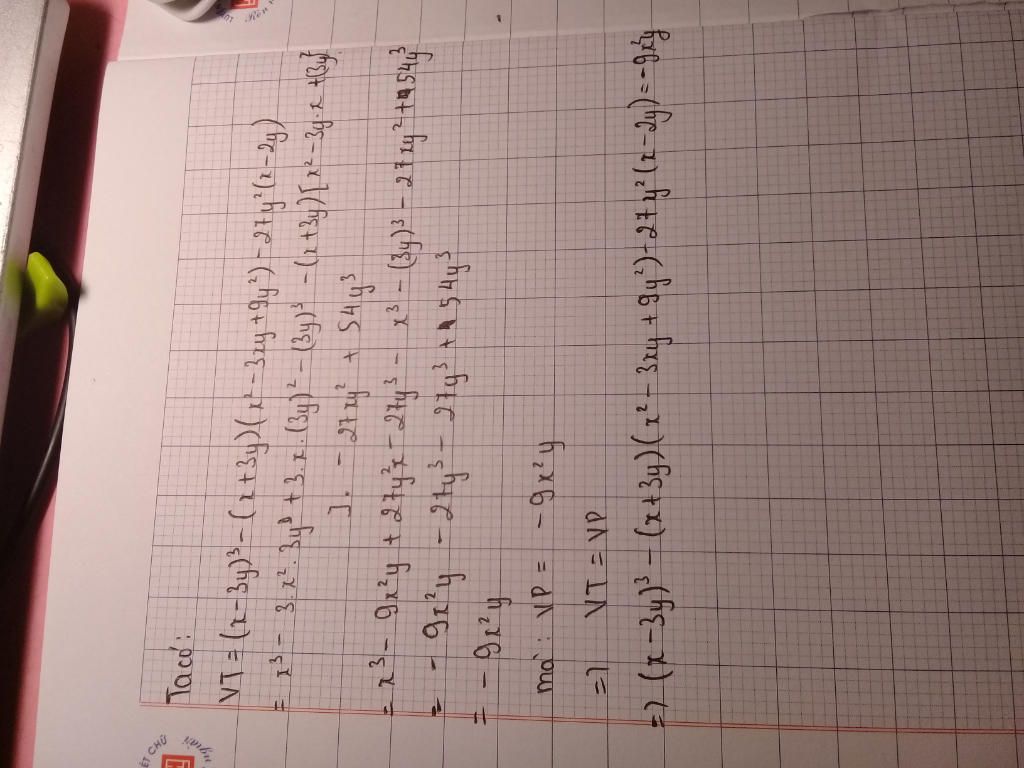 Ta có:
VT = (x - 3y)³ - (x + 3y)(x² - 3xy + 9y²) - 27y²(x - 2y)
= x³ - 3.x².3y + 3.x.(3y)² - (3y)³ - (x + 3y)[x² - 3y.x + (3y)²
]. - 27xy² + 54y³
= x³ - 9x²y + 27y²x - 27y³ - x³ - (3y)³ - 27xy² + 54y³
= - 9x²y - 27y³ - 27y³ + 54y³
= - 9x²y
mà: VP = - 9x²y
=> VT = VP
=> (x - 3y)³ - (x + 3y)(x² - 3xy + 9y²) - 27y²(x - 2y) = -9x²y